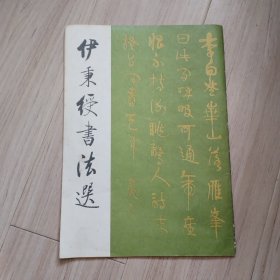 伊秉綬書法選
李白登華山落雁峯
曰此呼吸可通帝座
恨不携謝朓驚人詩來
搔首問青天